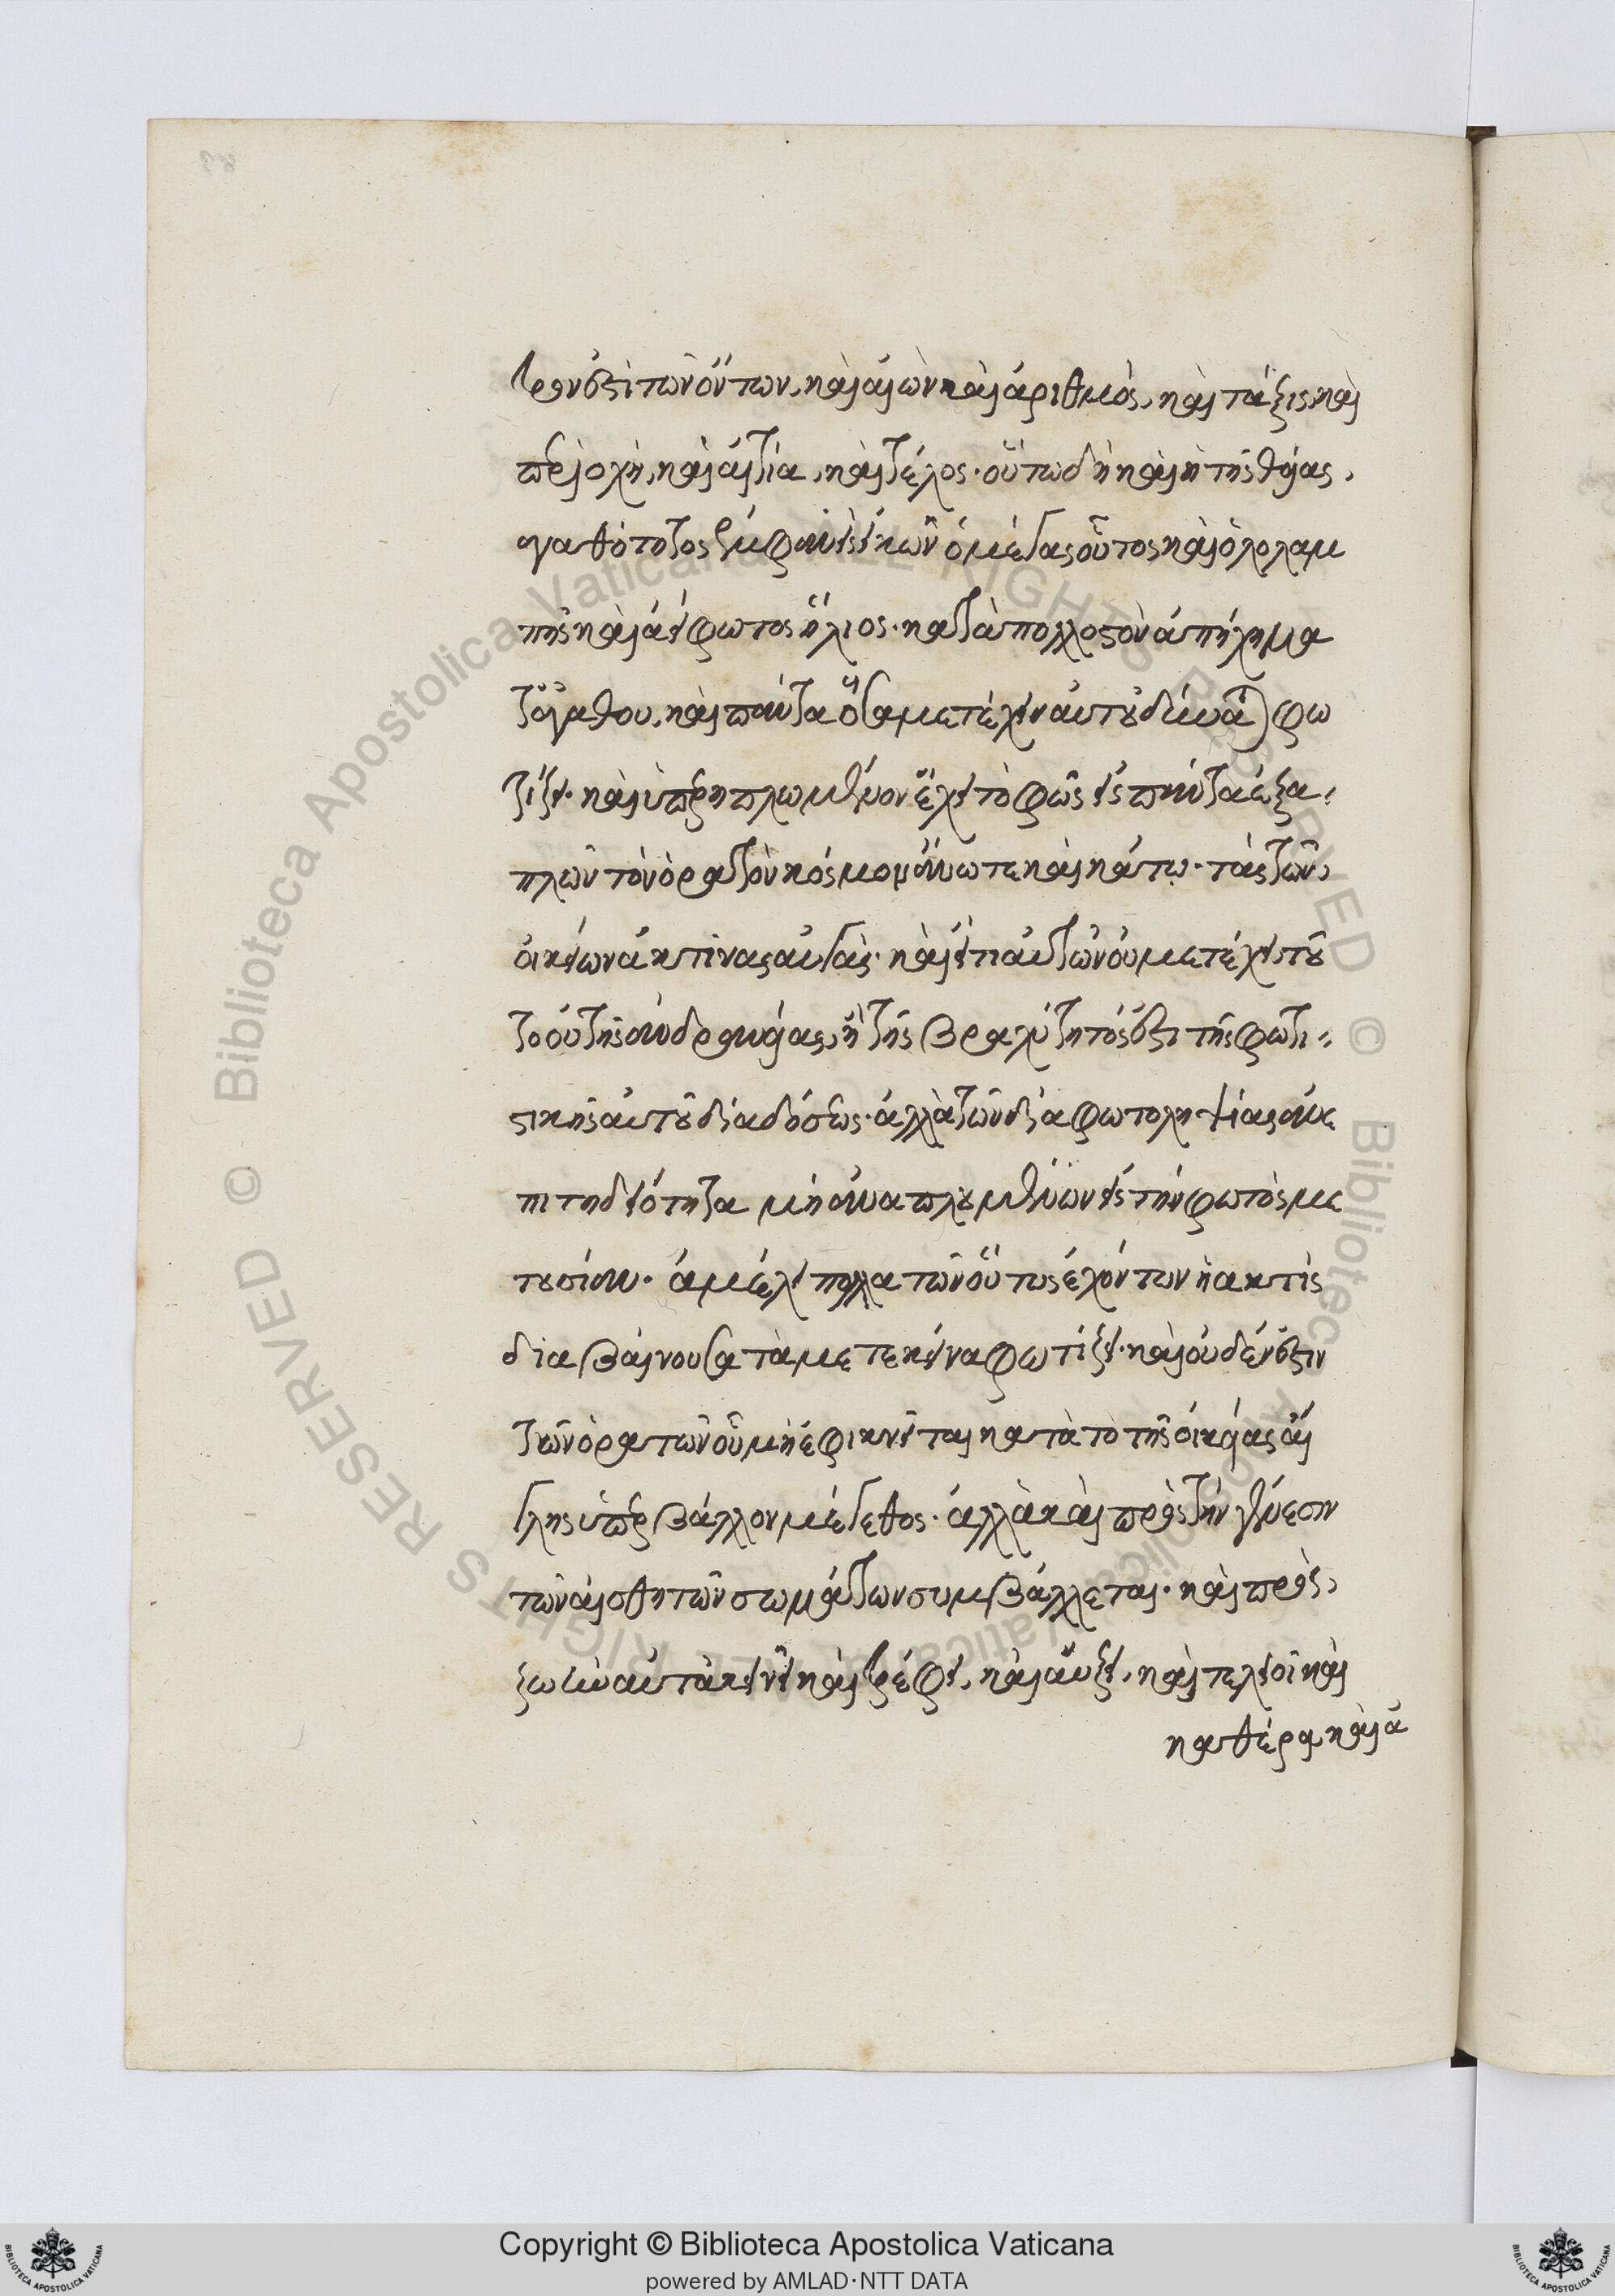 τρον ἐστὶ τῶν ὄντων, καὶ αἰὼν καὶ ἀριθμὸς, καὶ τάξις, καὶ
περιοχὴ, καὶ αἰτία, καὶ τέλος· οὕτω δὴ καὶ ἡ τῆς θείας,
ἀγαθότητος ἐμφανὴς εἰκὼν ὁ μέγας οὗτος καὶ ὁλολαμ
πὴς καὶ ἀείφωτος ἥλιος· κατὰ πολλοστὸν ἀπήχημα
τἀγαθου, καὶ πάντα ὅσα μετέχειν αὐτοῦ δύναται φω
τίζει· καὶ ὑπερηπλωμένον ἔχει τὸ φῶς εἰς πάντα ἐξα
πλῶν τὸν ὁρατὸν κόσμον ἄνω τε καὶ κάτω· τὰς τῶν,
οἰκείων ἀκτῖνας αὐγὰς· καὶ εἴ τι αὐτῶν οὐ μετέχει τοῦ
το οὐ τῆς ἀνδρανείας, ἢ τῆς βραχύτητός ἐστι τῆς φωτι
στικῆς αὐτοῦ διαδόσεως· ἀλλὰ τῶν διὰ φωτοληψίας ἀνε
πιτηδειότητα μὴ ἀναπλουμένων εἰς τὴν φωτὸς με
τουσίαν· ἀμέλει πολλα τῶν οὕτως ἐχόντων ἡ ακτὶς
διαβαίνουσα τὰ μετ εκεῖνα φωτίζει· καὶ οὐδέν ἐστιν
τῶν ὁρατῶν οὗ μὴ ἐφικνεῖται κατὰ τὸ τῆς οἰκείας αἴ
γλης ὑπερβάλλον μέγεθος· ἀλλὰ καὶ πρὸς τὴν γένεσιν
τῶν αἰσθητῶν σωμάτων συμβάλλεται· καὶ πρὸς,
ζωὴν αὐτὰ κινεῖ καὶ τρέφει, καὶ αὔξει, καὶ τελειοῖ καὶ
καθαίρει καὶ ἀ
Copyright © Biblioteca Apostolica Vaticana
powered by AMLAD·NTT DATA